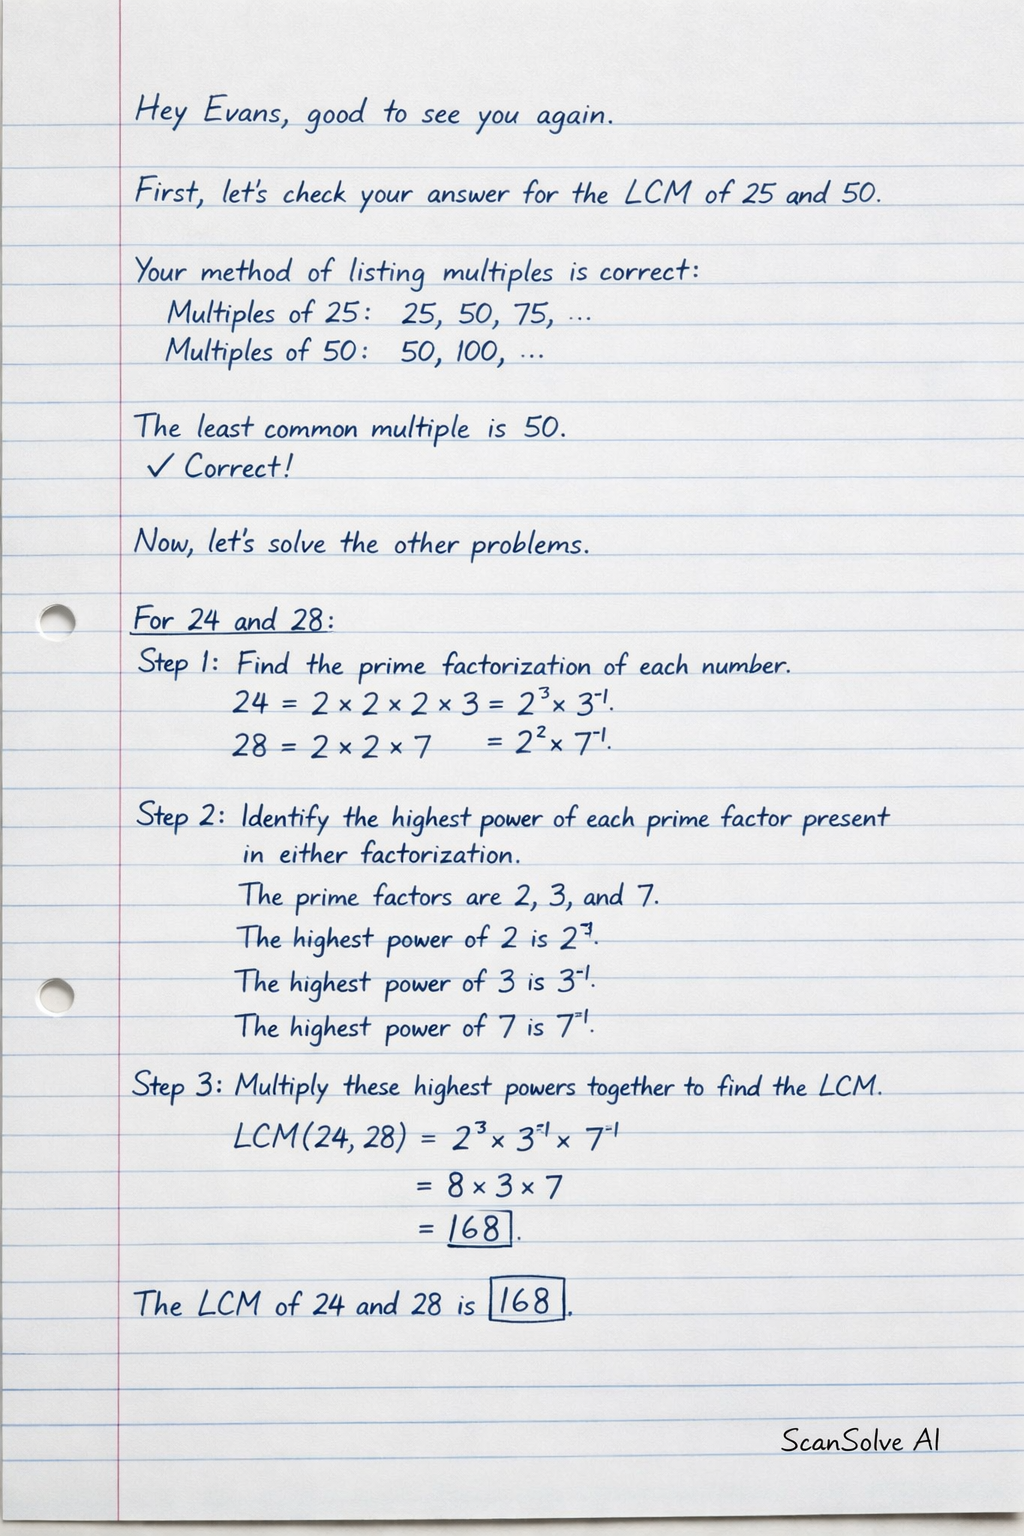 Hey Evans, good to see you again.
First, let's check your answer for the LCM of 25 and 50.
Your method of listing multiples is correct:
Multiples of 25: 25, 50, 75, ...
Multiples of 50: 50, 100, ...
The least common multiple is 50.
✓ Correct!
Now, let's solve the other problems.
For 24 and 28:
Step 1: Find the prime factorization of each number.
24 = 2 × 2 × 2 × 3 = 2³ × 3⁻¹.
28 = 2 × 2 × 7 = 2² × 7⁻¹.
Step 2: Identify the highest power of each prime factor present
in either factorization.
The prime factors are 2, 3, and 7.
The highest power of 2 is
The highest power of 3 is 3⁻¹.
The highest power of 7 is 7⁼¹.
Step 3: Multiply these highest powers together to find the LCM.
LCM(24, 28) = 2³ × 3⁼¹ × 7⁼¹
= 8 × 3 × 7
= 168.
The LCM of 24 and 28 is 168.
ScanSolve AI